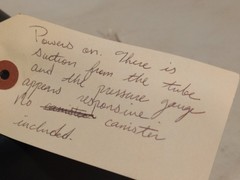 Powers on. There is
suction from the tube
and the pressure gauge
appears responsive.
No canister
included.